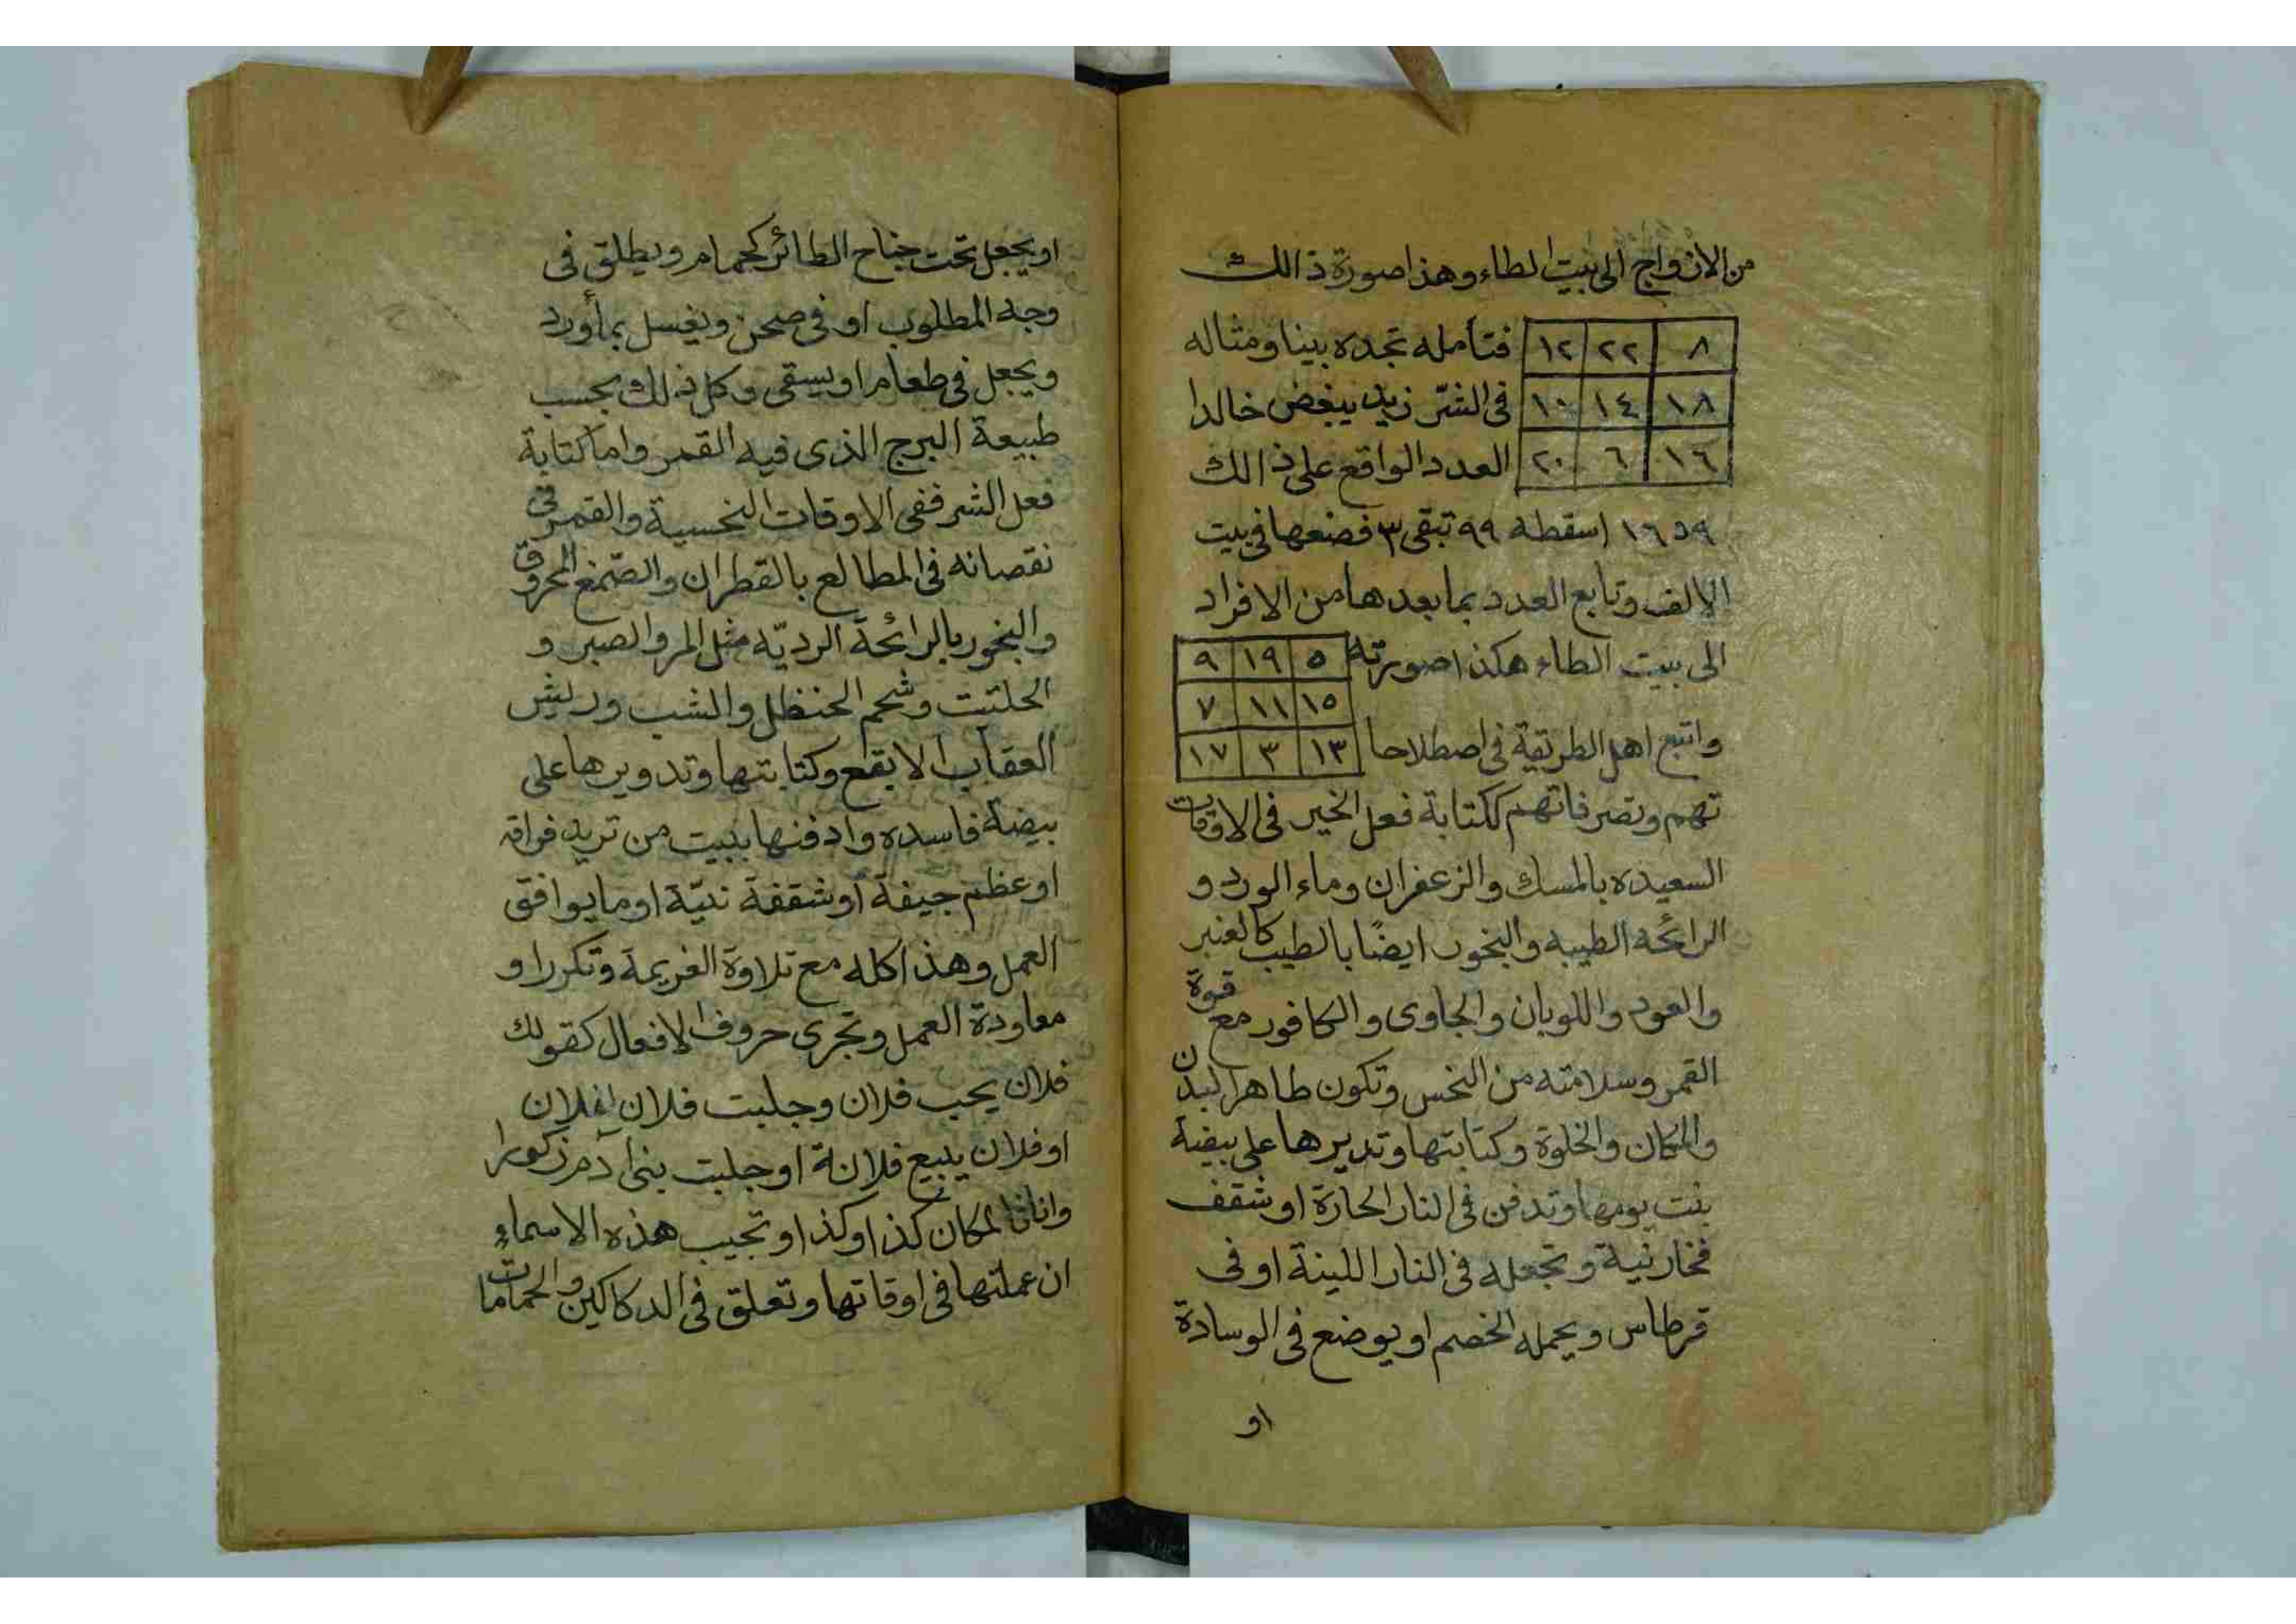 من الازواج الى بيت الطاء وهذا صورة ذالك
٨ ٢٢ ١٢ فتأمله تجده بينا ومثاله
١٨ ١٤ ١٠ فى الشرّ زيد يبغض خالدا
١٦ ٦ ٢٠ العدد الواقع على ذالك
١٦٥٩ اسقطه ٩٩ تبقى ٣ فضعها فى بيت
الالف وتابع العدد بما بعدها من الافراد
الى بيت الطاء هكذا صورته ٥ ١٩ ٩
١٥ ١١ ٧
واتبع اهل الطريقة فى اصطلاحا ١٣ ٣ ١٧
تهم وتصرفاتهم ككتابة فعل الخير فى الاوقات
السعيده بالمسك والزعفران وماء الورد و
الرائحه الطيبه والبخور ايضًا بالطيب كالعنبر
والعود واللوبان والجاوى والكافور مع قوة
القمر وسلامته من النحس وتكون طاهر البدن
والمكان والخلوة وكتابتها وتديرها على بيضة
بنت يومها وتدفن فى النار الحارة او شقف
فخار نية وتجعله فى النار اللينة او فى
قرطاس ويحمله الخصم او يوضع فى الوسادة
او
او يجعل تحت جناح الطائر كحمام ويطلق فى
وجه المطلوب او فى صحن ويغسل بمأورد
ويجعل فى طعام او يسقى وكل ذلك بحسب
طبيعة البرج الذى فيه القمر واما كتابة
فعل الشر ففى الاوقات النحسية والقمر فى
نقصانه فى المطالع بالقطران والصّمغ المحروق
والبخور بالرائحة الرديّه مثل المر والصبر و
الحلتيت وشحم الحنظل والشب وريش
العقاب الابقع وكتابتها وتدويرها على
بيضة فاسده وادفنها ببيت من تريد فراقه
او عظم جيفة او شقفة نيّة او ما يوافق
العمل وهذا كله مع تلاوة العزيمة وتكررا و
معاودة العمل وتجرى حروف الافعال كقولك
فلان يحب فلان وجلبت فلان لفلان
او فلان يبيع فلانة او جلبت بنى آدم ذكورا
واناثا لمكان كذا وكذا وتجيب هذه الاسماء
ان عملتها فى اوقاتها وتعلق فى الدكاكين والحمامات